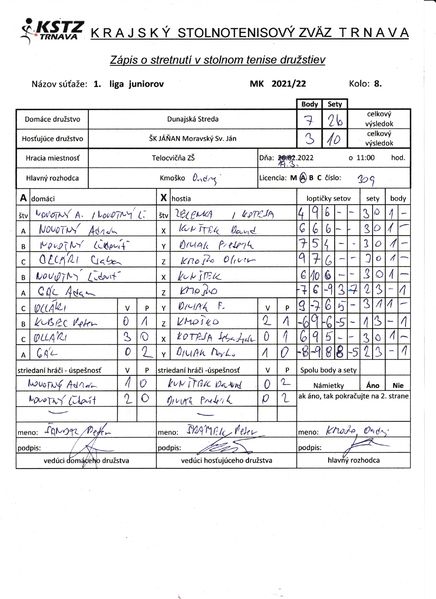 KSTZ TRNAVA
KRAJSKÝ STOLNOTENISOVÝ ZVÄZ TRNAVA
Zápis o stretnutí v stolnom tenise družstiev
Názov súťaže: 1. liga juniorov MK 2021/22 Kolo: 8.
Body Sety
Domáce družstvo Dunajská Streda 7 26 celkový výsledok
Hosťujúce družstvo ŠK JÁŇAN Moravský Sv. Ján 3 10 celkový výsledok
Hracia miestnosť Telocvičňa ZŠ Dňa: .2022 o 11:00 hod.
Hlavný rozhodca Kmoško Ondrej Licencia: M A B C číslo: 309
A domáci X hostia loptičky setov sety body
štv NOVOTNÝ A. / NOVOTNÝ Ľ. štv ZELENKA / KOTEJA 4 9 6 - - 3 0 1 -
A NOVOTNÝ Adrian X KUNÍTEK David 6 6 6 - - 3 0 1 -
B NOVOTNÝ Ľubomír Y DIVIAK Frederik 7 5 4 - - 3 0 1 -
C OLLÁRI Z KMOŠKO Oliver 9 7 6 - - 3 0 1 -
B NOVOTNÝ X KUNÍTEK 6 10 6 - - 3 0 1 -
A GÁL Adam Z KMOŠKO -7 6 -9 3 -7 2 3 - 1
C OLLÁRI Y DIVIAK F. 9 -7 6 5 - 3 1 1 -
B KUBEC Peter 0 1 Z KMOŠKO 2 1 -6 9 -6 -5 - 1 3 - 1
C OLLÁRI 3 0 X KOTEJA 0 1 6 9 5 - - 3 0 1 -
A GÁL 0 2 Y DIVIAK 1 0 -8 -9 8 8 -5 2 3 - 1
striedaní hráči - úspešnosť V P striedaní hráči - úspešnosť V P Spolu body a sety
NOVOTNÝ Adrian 1 0 KUNÍTEK David 0 2 Námietky Áno Nie
NOVOTNÝ 2 0 DIVIAK Frederik 0 2 ak áno, tak pokračujte na 2. strane
meno: Peter meno: Peter meno: Kmoško Ondrej
podpis: podpis: podpis:
vedúci domáceho družstva vedúci hosťujúceho družstva hlavný rozhodca